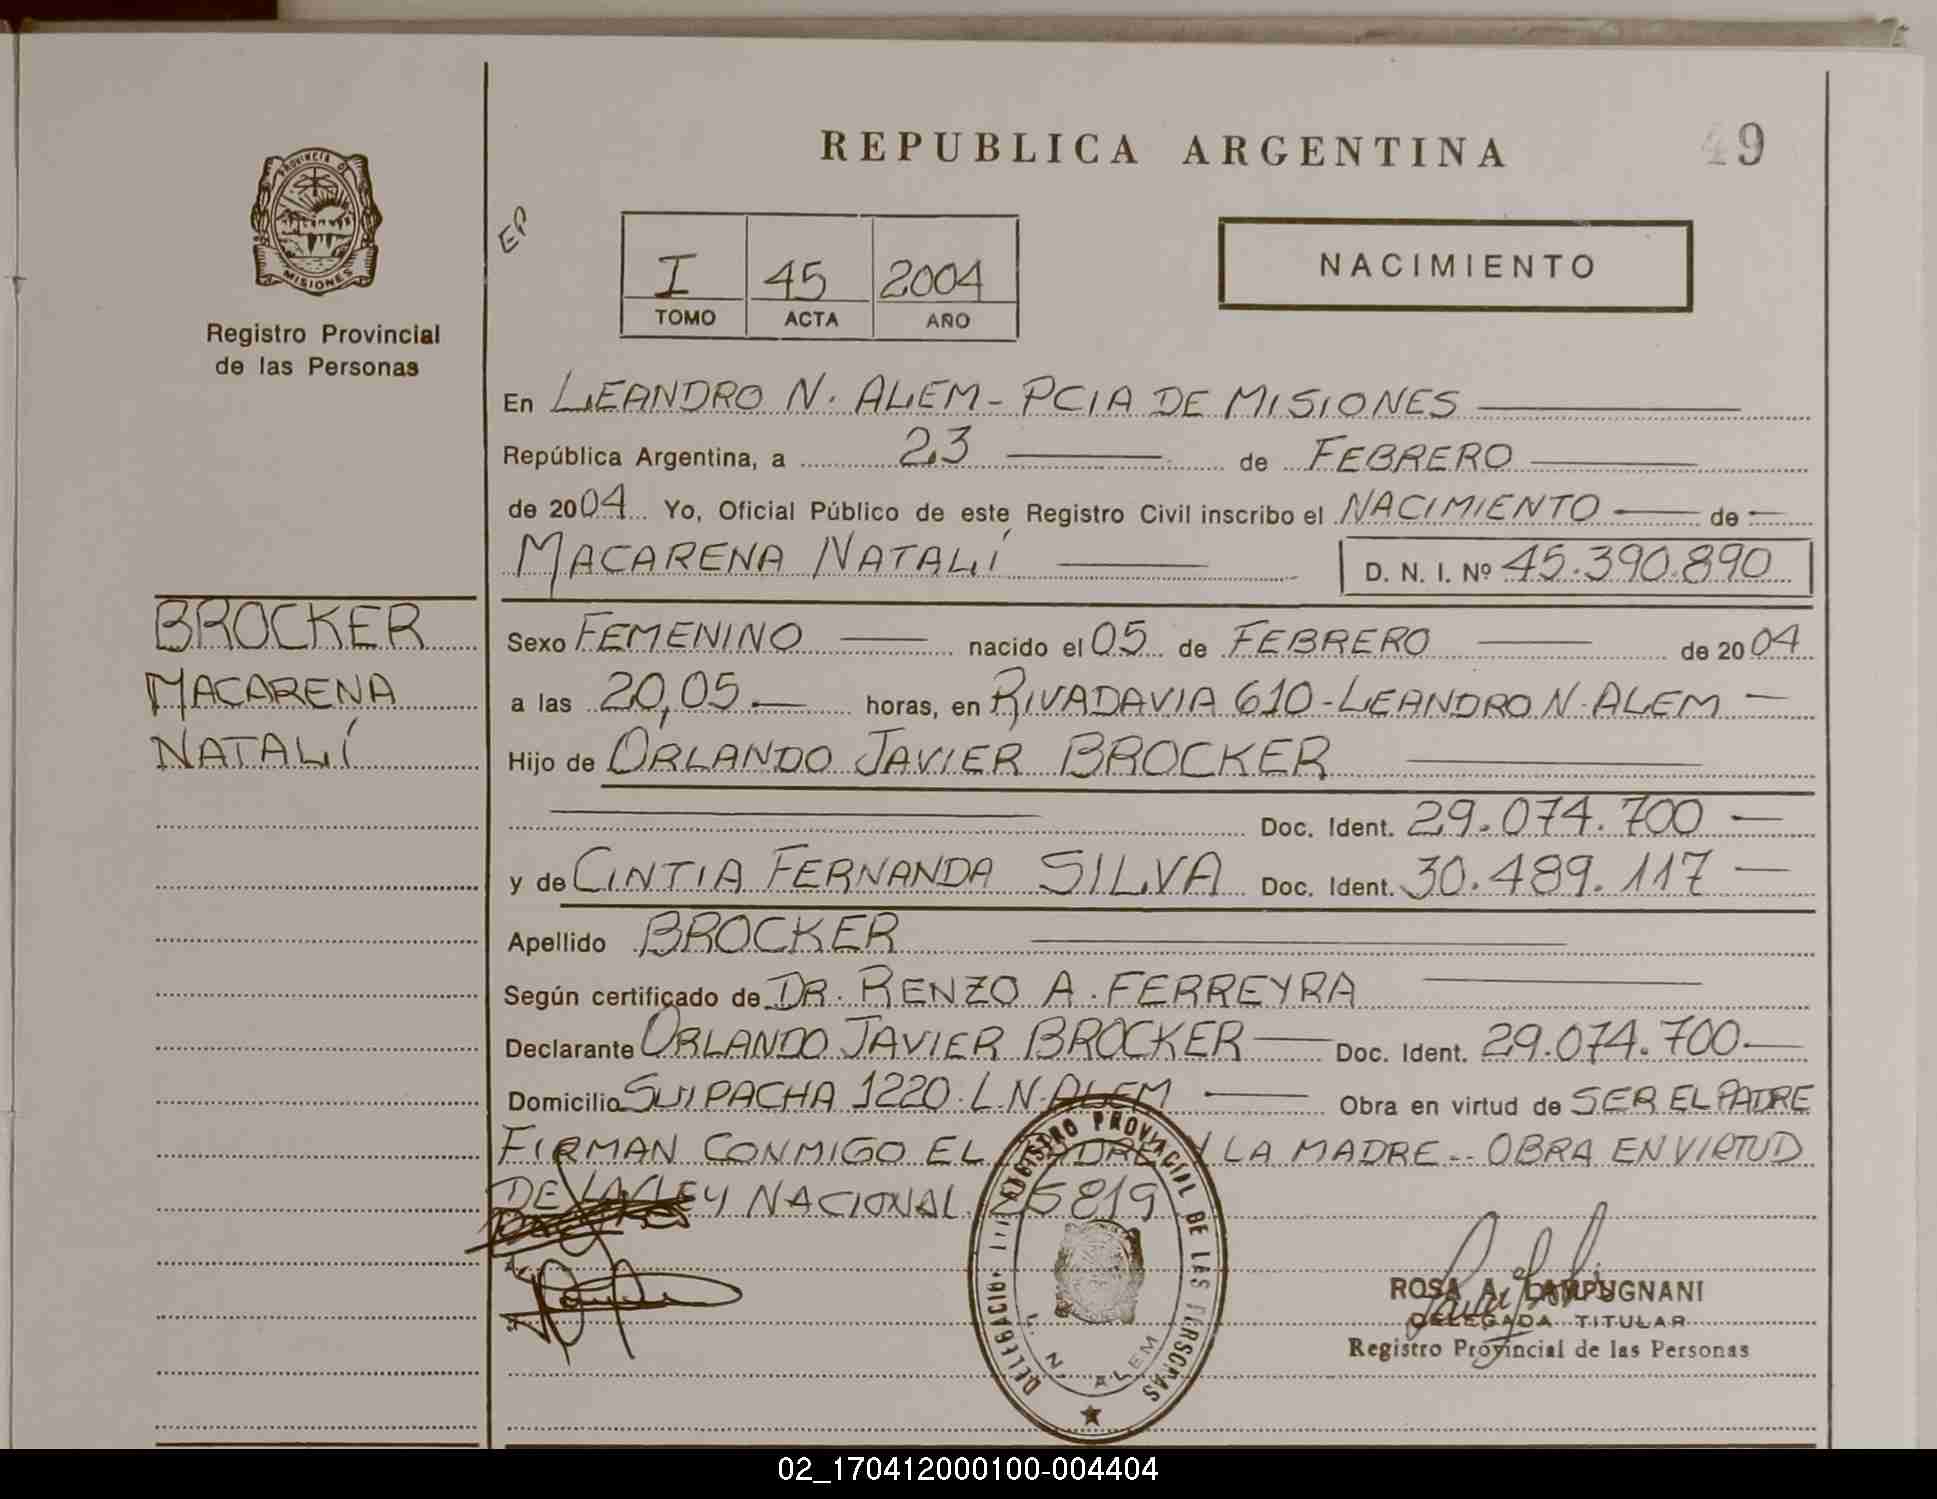 REPUBLICA ARGENTINA
49
PROVINCIA DE
MISIONES
Registro Provincial
de las Personas
EP
I 45 2004
TOMO ACTA AÑO
NACIMIENTO
En LEANDRO N. ALEM - PCIA DE MISIONES
República Argentina, a 23 de FEBRERO
de 2004 Yo, Oficial Público de este Registro Civil inscribo el NACIMIENTO de
MACARENA NATALÍ D. N. I. Nº 45.390.890
BROCKER
MACARENA
NATALÍ
Sexo FEMENINO nacido el 05 de FEBRERO de 2004
a las 20,05 horas, en RIVADAVIA 610 - LEANDRO N. ALEM
Hijo de ORLANDO JAVIER BROCKER
Doc. Ident. 29.074.700
y de CINTIA FERNANDA SILVA Doc. Ident. 30.489.117
Apellido BROCKER
Según certificado de DR. RENZO A. FERREYRA
Declarante ORLANDO JAVIER BROCKER Doc. Ident. 29.074.700
Domicilio SUIPACHA 1220. L.N. ALEM Obra en virtud de SER EL PADRE
FIRMAN CONMIGO EL PADRE Y LA MADRE.- OBRA EN VIRTUD
DE LA LEY NACIONAL. 25819
REGISTRO PROVINCIAL DE LAS PERSONAS
L. N. ALEM
ROSA A. LAMPUGNANI
DELEGADA TITULAR
Registro Provincial de las Personas
02_170412000100-004404